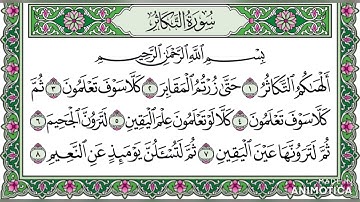 سُورَةُ التَّكَاثُرِ
بِسْمِ اللَّهِ الرَّحْمَٰنِ الرَّحِيمِ
أَلْهَىٰكُمُ ٱلتَّكَاثُرُ ١ حَتَّىٰ زُرْتُمُ ٱلْمَقَابِرَ ٢ كَلَّا سَوْفَ تَعْلَمُونَ ٣ ثُمَّ
كَلَّا سَوْفَ تَعْلَمُونَ ٤ كَلَّا لَوْ تَعْلَمُونَ عِلْمَ ٱلْيَقِينِ ٥ لَتَرَوُنَّ ٱلْجَحِيمَ ٦
ثُمَّ لَتَرَوُنَّهَا عَيْنَ ٱلْيَقِينِ ٧ ثُمَّ لَتُسْـَٔلُنَّ يَوْمَئِذٍ عَنِ ٱلنَّعِيمِ ٨
ANIMOTICA